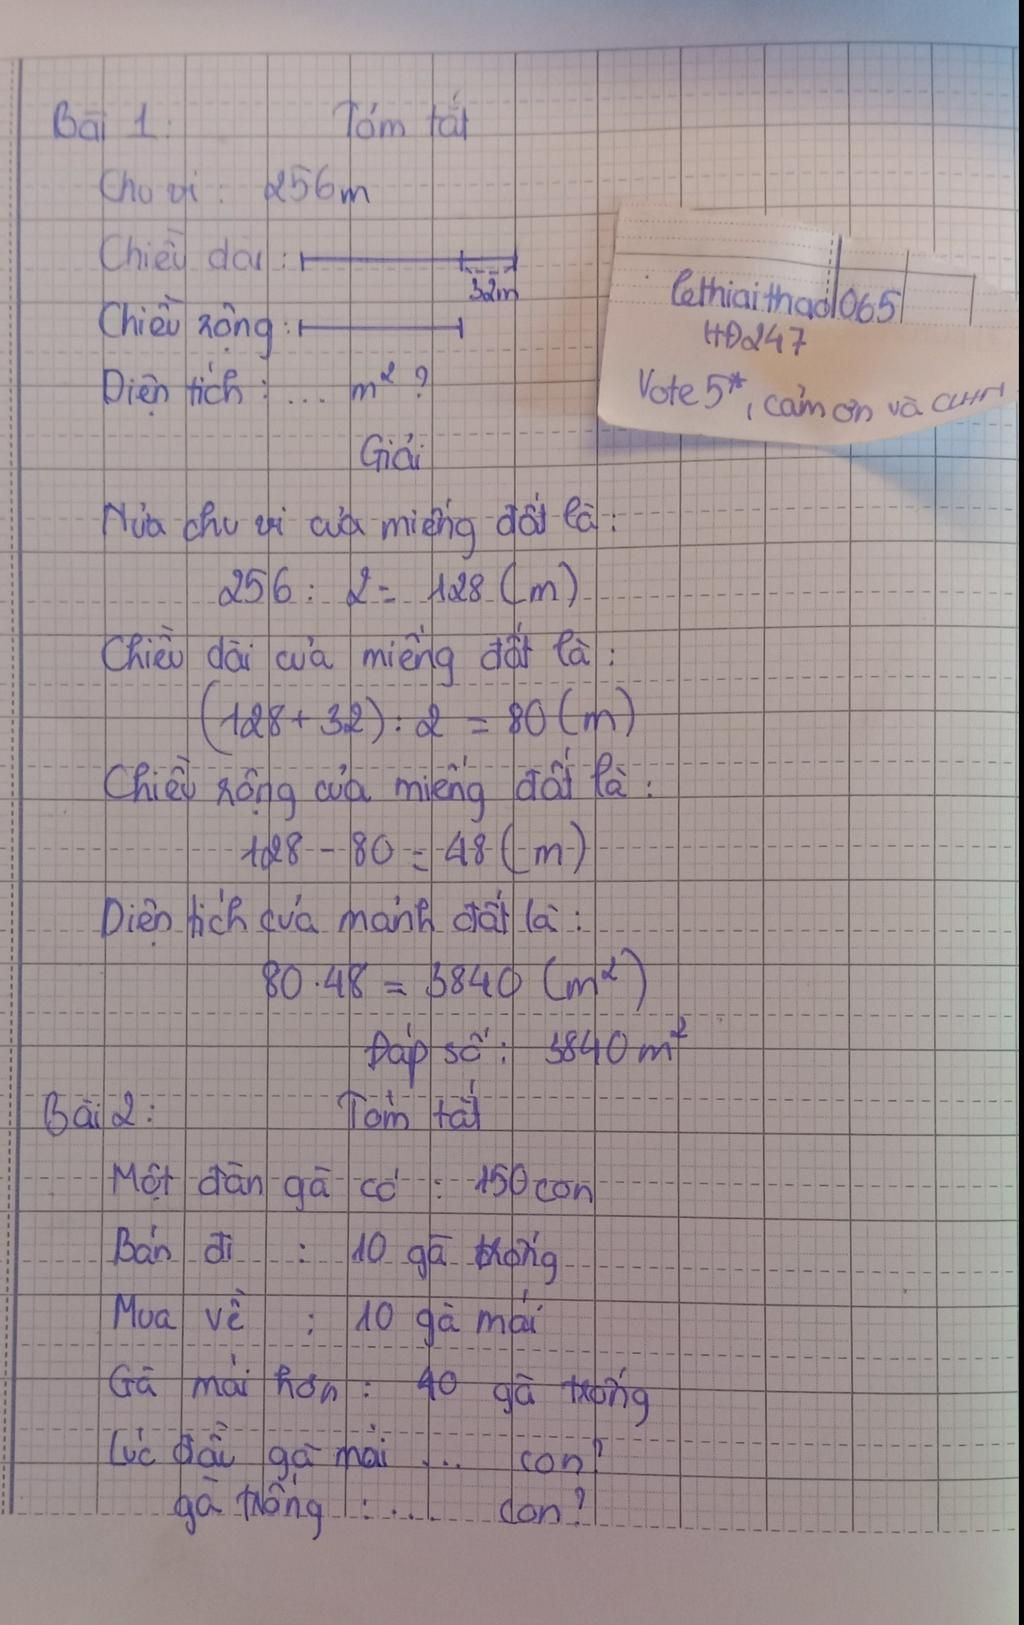 Bài 1: Tóm tắt
Chu vi: 256m
Chiều dài:
32m
Chiều rộng:
Diện tích: ... m² ?
lethiaithao1065
HĐ247
Vote 5*, cảm ơn và CLHN
Giải
Nửa chu vi của miếng đất là:
256 : 2 = 128 (m)
Chiều dài của miếng đất là:
(128 + 32) : 2 = 80 (m)
Chiều rộng của miếng đất là:
128 - 80 = 48 (m)
Diện tích của mảnh đất là:
80 . 48 = 3840 (m²)
Đáp số: 3840 m²
Bài 2: Tóm tắt
Một đàn gà có : 150 con
Bán đi : 10 gà trống
Mua về : 10 gà mái
Gà mái hơn : 40 gà trống
Lúc đầu gà mái ... con?
gà trống : .... con?